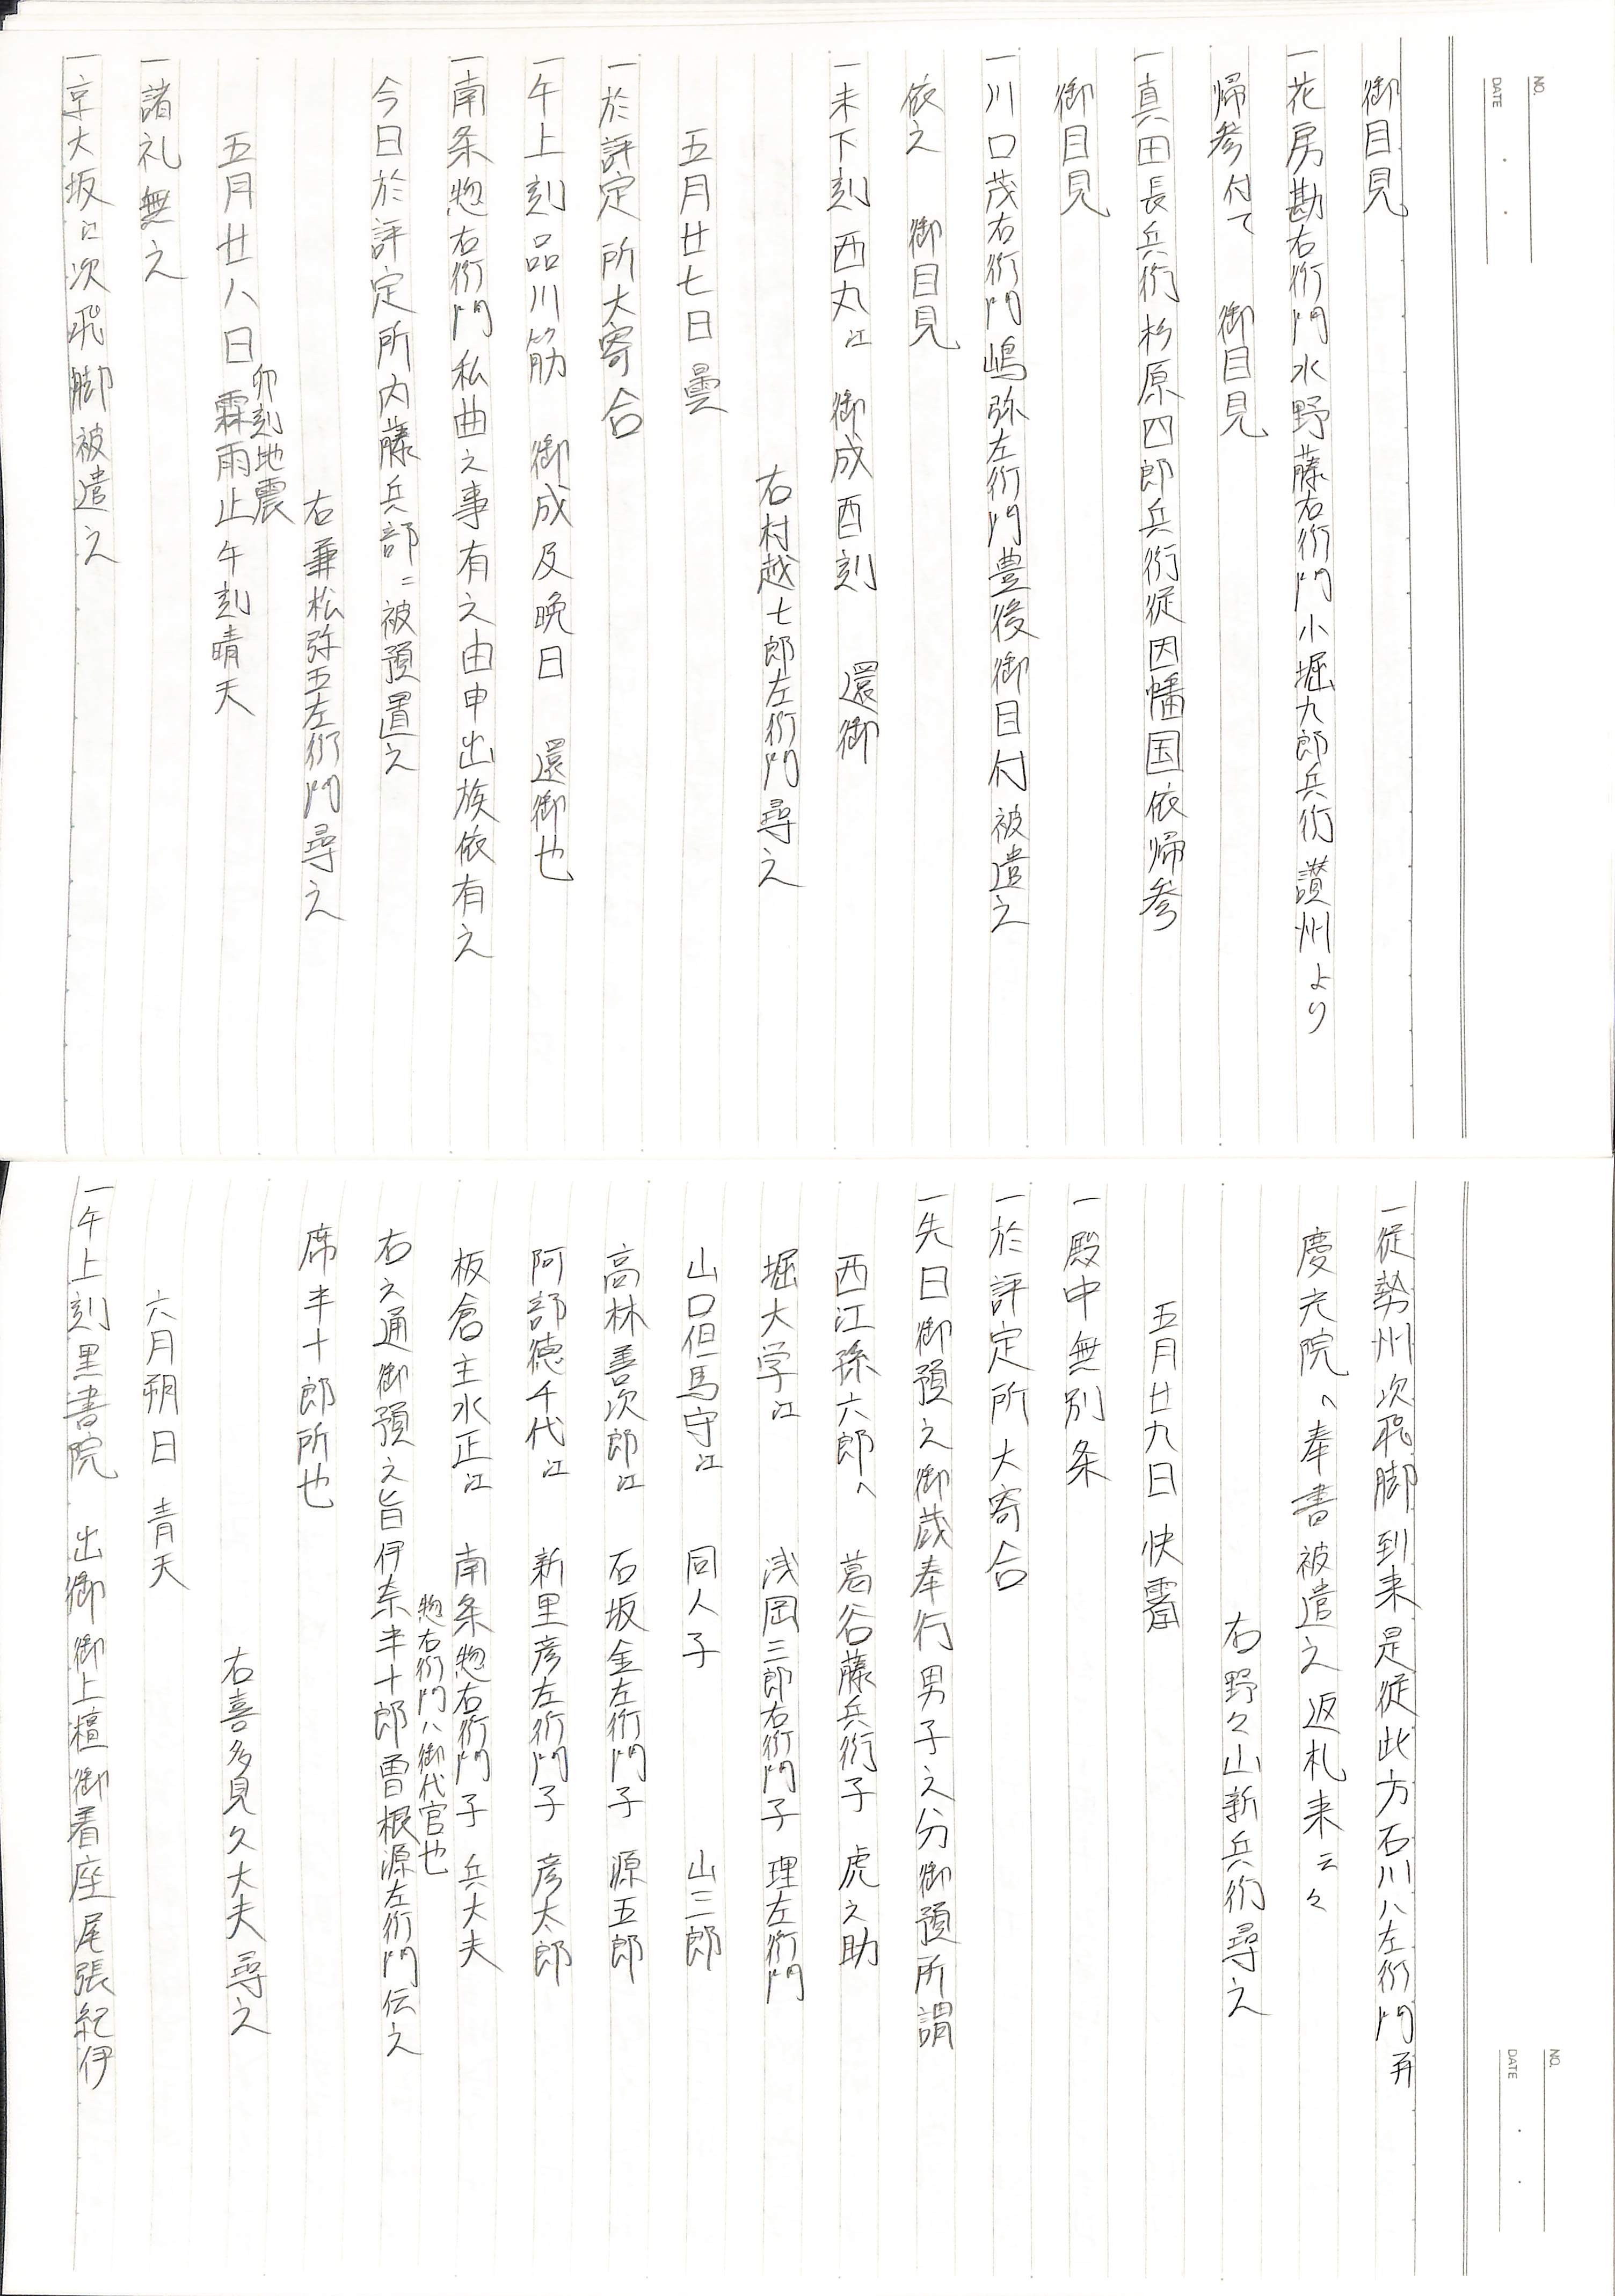 NO.
DATE
御目見
一花房勘右衛門水野藤右衛門小堀九郎兵衛讃州より
帰参付て 御目見
一真田長兵衛杉原四郎兵衛従因幡国依帰参
御目見
一川口茂右衛門嶋弥左衛門豊後御目付被遣之
依之 御目見
一未下刻西丸江 御成酉刻 還御
右村越七郎左衛門尋之
五月廿七日曇
一於評定所大寄合
一午上刻品川筋 御成及晩日 還御也
一南条惣右衛門私曲之事有之由申出族依有之
今日於評定所内藤兵部ニ被預置之
右兼松弥五左衛門尋之
五月廿八日 卯刻地震 霖雨止午刻晴天
一諸礼無之
一京大坂江次飛脚被遣之
NO.
DATE
一従勢州次飛脚到来是従此方石川八左衛門并
慶光院へ奉書被遣之返札来云々
右野々山新兵衛尋之
五月廿九日快霽
一殿中無別条
一於評定所大寄合
一先日御預之御蔵奉行男子之分御預所謂
西江孫六郎へ 葛谷藤兵衛子 虎之助
堀大学江 浅岡三郎右衛門子 理左衛門
山口但馬守江 同人子 山三郎
高林善次郎江 石坂金左衛門子 源五郎
阿部徳千代江 新里彦左衛門子 彦太郎
板倉主水正江 南条惣右衛門子 兵大夫
惣右衛門ハ御代官也
右之通御預之旨伊奈半十郎曽根源左衛門伝之
席半十郎所也
右喜多見久大夫尋之
六月朔日 青天
一午上刻黒書院 出御御上檀御着座尾張紀伊